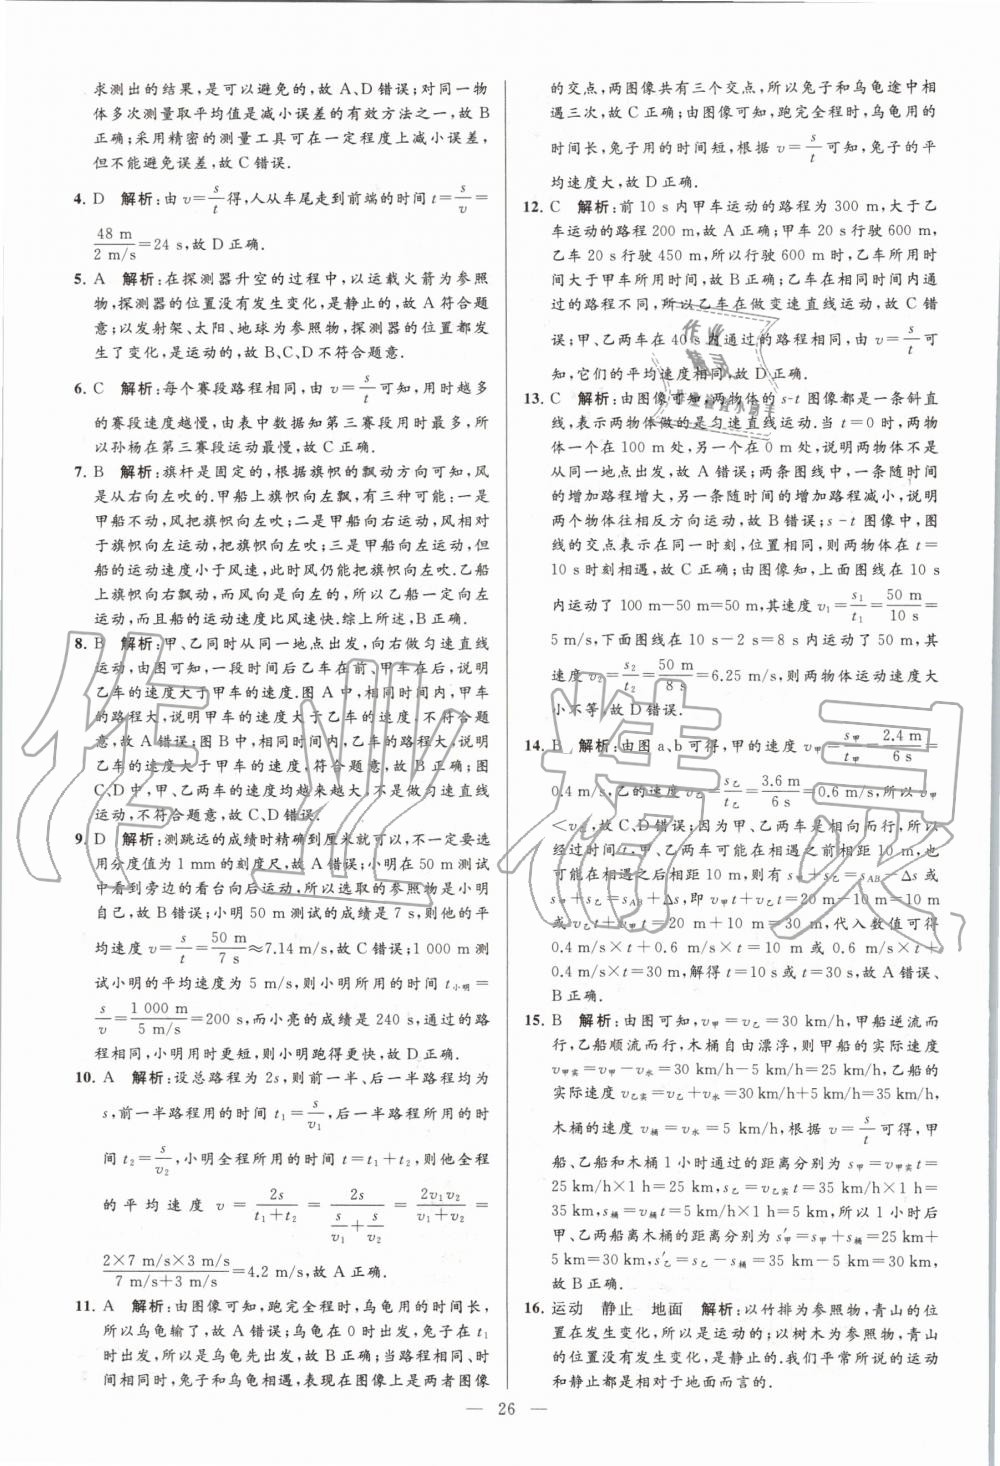 求测出的结果,是可以避免的,故 A、D 错误;对同一物
体多次测量取平均值是减小误差的有效方法之一,故 B
正确;采用精密的测量工具可在一定程度上减小误差,
但不能避免误差,故 C 错误.
4. D 解析:由 v=s/t得,人从车尾走到前端的时间 t=s/v=
48 m/2 m/s=24 s,故 D 正确.
5. A 解析:在探测器升空的过程中,以运载火箭为参照
物,探测器的位置没有发生变化,是静止的,故 A 符合题
意;以发射架、太阳、地球为参照物,探测器的位置都发
生了变化,是运动的,故 B、C、D 不符合题意.
6. C 解析:每个赛段路程相同,由 v=s/t可知,用时越多
的赛段速度越慢,由表中数据知第三赛段用时最多,所
以孙杨在第三赛段运动最慢,故 C 正确.
7. B 解析:旗杆是固定的,根据旗帜的飘动方向可知,风
是从右向左吹的.甲船上旗帜向左飘,有三种可能:一是
甲船不动,风把旗帜向左吹;二是甲船向右运动,风相对
于旗帜向左运动,把旗帜向左吹;三是甲船向左运动,但
船的运动速度小于风速,此时风仍能把旗帜向左吹.乙船
上旗帜向右飘动,而风向是向左的,所以乙船一定向左
运动,而且船的运动速度比风速快.综上所述,B 正确.
8. B 解析:甲、乙同时从同一地点出发,向右做匀速直线
运动,由图可知,一段时间后乙车在前、甲车在后,说明
乙车的速度大于甲车的速度.图 A 中,相同时间内,甲车
的路程大,说明甲车的速度大于乙车的速度,不符合题
意,故 A 错误;图 B 中,相同时间内,乙车的路程大,说明
乙车的速度大于甲车的速度,符合题意,故 B 正确;图
C、D 中,甲、乙两车的速度均越来越大,不是做匀速直线
运动,不符合题意,故 C、D 错误.
9. D 解析:测跳远的成绩时精确到厘米就可以,不一定要选
用分度值为 1 mm 的刻度尺,故 A 错误;小明在 50 m 测试
中看到旁边的看台向后运动,所以选取的参照物是小明
自己,故 B 错误;小明 50 m 测试的成绩是 7 s,则他的平
均速度 v=s/t=50 m/7 s≈7.14 m/s,故 C 错误;1 000 m 测
试小明的平均速度为 5 m/s,则小明所用的时间 t小明=
s/v=1 000 m/5 m/s=200 s,而小亮的成绩是 240 s,通过的路
程相同,小明用时更短,则小明跑得更快,故 D 正确.
10. A 解析:设总路程为 2s,则前一半、后一半路程均为
s,前一半路程用的时间 t₁=s/v₁,后一半路程所用的时
间 t₂=s/v₂,小明全程所用的时间 t=t₁+t₂,则他全程
的平均速度 v=2s/(t₁+t₂)=2s/(s/v₁+s/v₂)=2v₁v₂/(v₁+v₂)=
(2×7 m/s×3 m/s)/(7 m/s+3 m/s)=4.2 m/s,故 A 正确.
11. A 解析:由图像可知,跑完全程时,乌龟用的时间长,
所以乌龟输了,故 A 错误;乌龟在 0 时出发,兔子在 t₁
时出发,所以乌龟先出发,故 B 正确;当路程相同、时
间相同时,兔子和乌龟相遇,表现在图像上是两者图像
的交点,两图像共有三个交点,所以兔子和乌龟途中相
遇三次,故 C 正确;由图像可知,跑完全程时,乌龟用的
时间长,兔子用的时间短,根据 v=s/t可知,兔子的平
均速度大,故 D 正确.
12. C 解析:前 10 s 内甲车运动的路程为 300 m,大于乙
车运动的路程 200 m,故 A 正确;甲车 20 s 行驶 600 m,
乙车 20 s 行驶 450 m,所以行驶 600 m 时,乙车所用时
间大于甲车所用时间,故 B 正确;乙车在相同时间内通
过的路程不同,所以乙车在做变速直线运动,故 C 错
误;甲、乙两车在 40 s 内通过的路程相同,由 v=s/t可
知,它们的平均速度相同,故 D 正确.
13. C 解析:由图像可知,两物体的 s-t 图像都是一条斜直
线,表示两物体做的是匀速直线运动.当 t=0 时,两物
体一个在 100 m 处,另一个在 0 m 处,说明两物体不是
从同一地点出发,故 A 错误;两条图线中,一条随时间
的增加路程增大,另一条随时间的增加路程减小,说明
两个物体往相反方向运动,故 B 错误;s-t 图像中,图
线的交点表示在同一时刻,位置相同,则两物体在 t=
10 s 时刻相遇,故 C 正确;由图像知,上面图线在 10 s
内运动了 100 m-50 m=50 m,其速度 v₁=s₁/t₁=50 m/10 s=
5 m/s,下面图线在 10 s-2 s=8 s 内运动了 50 m,其
速度 v₂=s₂/t₂=50 m/8 s=6.25 m/s,则两物体运动速度大
小不等,故 D 错误.
14. B 解析:由图 a、b 可得,甲的速度 v甲=s甲/t甲=2.4 m/6 s=
0.4 m/s,乙的速度 v乙=s乙/t乙=3.6 m/6 s=0.6 m/s,所以 v甲
<v乙,故 C、D 错误;因为甲、乙两车是相向而行,所以
经过时间 t,甲、乙两车可能在相遇之前相距 10 m,也
可能在相遇之后相距 10 m,则有 s甲+s乙=sAB-Δs 或
s甲+s乙=sAB+Δs,即 v甲t+v乙t=20 m-10 m=10 m
或 v甲t+v乙t=20 m+10 m=30 m,代入数值可得
0.4 m/s×t+0.6 m/s×t=10 m 或 0.6 m/s×t+
0.4 m/s×t=30 m,解得 t=10 s 或 t=30 s,故 A 错误、
B 正确.
15. B 解析:由图可知,v甲=v乙=30 km/h,甲船逆流而
行,乙船顺流而行,木桶自由漂浮,则甲船的实际速度
v甲实=v甲-v水=30 km/h-5 km/h=25 km/h,乙船的
实际速度 v乙实=v乙+v水=30 km/h+5 km/h=35 km/h,
木桶的速度 v桶=v水=5 km/h,根据 v=s/t可得,甲
船、乙船和木桶 1 小时通过的距离分别为 s甲=v甲实t=
25 km/h×1 h=25 km,s乙=v乙实t=35 km/h×1 h=
35 km,s桶=v桶t=5 km/h×1 h=5 km,所以 1 小时后
甲、乙两船离木桶的距离分别为 s′甲=s甲+s桶=25 km+
5 km=30 km,s′乙=s乙-s桶=35 km-5 km=30 km,
故 B 正确.
16. 运动 静止 地面 解析:以竹排为参照物,青山的位
置在发生变化,所以是运动的;以树木为参照物,青山
的位置没有发生变化,是静止的.我们平常所说的运动
和静止都是相对于地面而言的.
— 26 —
作业精灵
作业
精灵